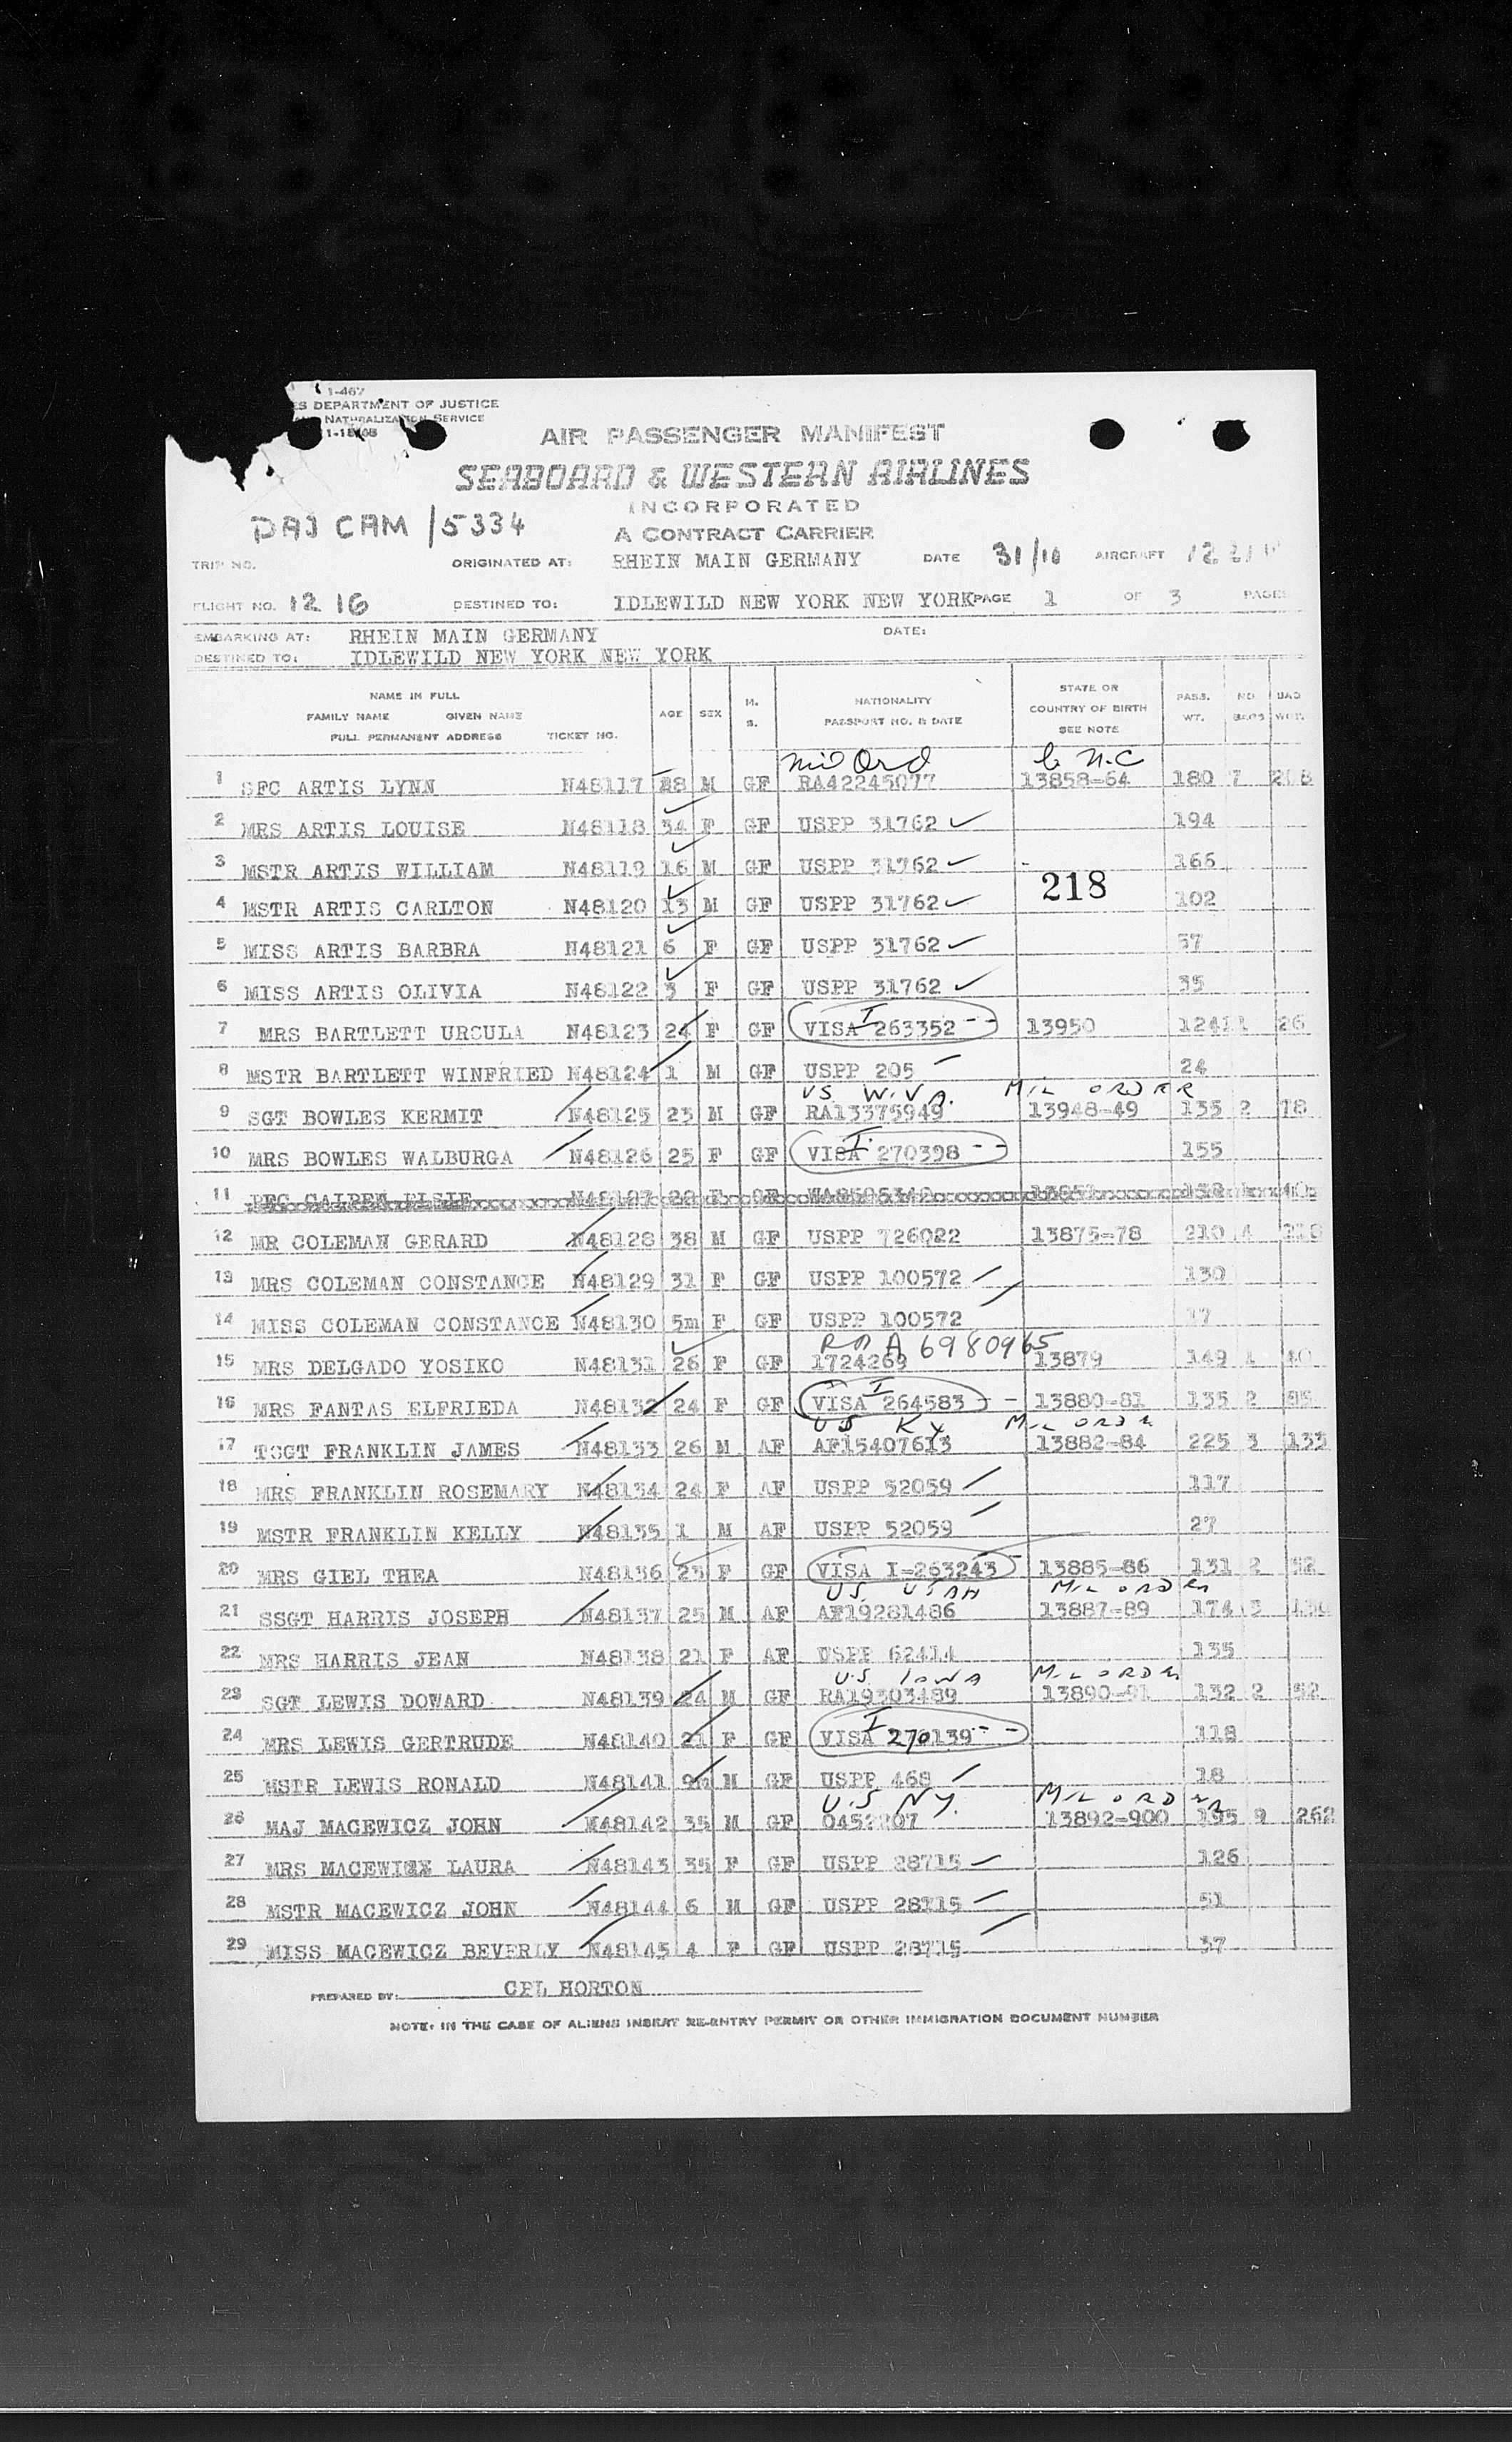 1-467
ES DEPARTMENT OF JUSTICE
NATURALIZATION SERVICE
AIR PASSENGER MANIFEST
SEABOARD & WESTERN AIRLINES
INCORPORATED
A CONTRACT CARRIER
CAM /5334
TRIP NO. ORIGINATED AT: RHEIN MAIN GERMANY DATE 31/10 AIRCRAFT
FLIGHT NO. 1216 DESTINED TO: IDLEWILD NEW YORK NEW YORK PAGE 1 OF 3 PAGES
EMBARKING AT: RHEIN MAIN GERMANY DATE:
DESTINED TO: IDLEWILD NEW YORK NEW YORK
NAME IN FULL
FAMILY NAME GIVEN NAME
FULL PERMANENT ADDRESS TICKET NO. AGE SEX M. S. NATIONALITY PASSPORT NO. & DATE STATE OR COUNTRY OF BIRTH SEE NOTE PASS. WT. NO. BAGS BAG WGT.
Mil Ord b N.C
1 SFC ARTIS LYNN N48117 M GF RA42245077 13858-64 180 7
2 MRS ARTIS LOUISE N48118 34 F GF USPP 31762 194
3 MSTR ARTIS WILLIAM N48119 16 M GF USPP 31762 166
218
4 MSTR ARTIS CARLTON N48120 13 M GF USPP 31762 102
5 MISS ARTIS BARBRA N48121 6 F GF USPP 31762 57
6 MISS ARTIS OLIVIA N48122 3 F GF USPP 31762 35
7 MRS BARTLETT URSULA N48123 24 F GF VISA I 263352 13950 124 1 26
8 MSTR BARTLETT WINFRIED N48124 1 M GF USPP 205 24
US W.VA. MIL ORDER
9 SGT BOWLES KERMIT N48125 23 M GF RA13375949 13948-49 135 2 78
10 MRS BOWLES WALBURGA N48126 25 F GF VISA I 270398 155
11
12 MR COLEMAN GERARD N48128 38 M GF USPP 726022 13875-78 210 4
13 MRS COLEMAN CONSTANCE N48129 31 F GF USPP 100572 130
14 MISS COLEMAN CONSTANCE N48130 5m F GF USPP 100572 17
A6980965
15 MRS DELGADO YOSIKO N48131 26 F GF 1724269 13879 149 1 40
16 MRS FANTAS ELFRIEDA N48132 24 F GF VISA I 264583 13880-81 135 2
US KY MIL ORDR
17 TSGT FRANKLIN JAMES N48133 26 M AF AF15407613 13882-84 225 3 133
18 MRS FRANKLIN ROSEMARY N48134 24 F AF USPP 52059 117
19 MSTR FRANKLIN KELLY N48135 1 M AF USPP 52059 27
20 MRS GIEL THEA N48136 23 F GF VISA I-263243 13885-86 131 2 52
US. UTAH MIL ORDER
21 SSGT HARRIS JOSEPH N48137 25 M AF AF19281486 13887-89 174 3
22 MRS HARRIS JEAN N48138 21 F AF USPP 62414 135
U.S. IOWA MIL ORDER
23 SGT LEWIS DOWARD N48139 24 M GF RA19303489 13890-91 132 2 52
24 MRS LEWIS GERTRUDE N48140 21 F GF VISA I 270139 118
25 MSTR LEWIS RONALD N48141 9m M GF USPP 468 18
U.S NY. MIL ORDER
26 MAJ MACEWICZ JOHN N48142 35 M GF 13892-900 195 9 262
27 MRS LAURA N48143 35 F GF USPP 28715 126
28 MSTR MACEWICZ JOHN N48144 6 M GF USPP 28715 51
29 MISS MACEWICZ BEVERLY N48145 4 F GF USPP 28715 37
PREPARED BY: CPL HORTON
NOTE: IN THE CASE OF ALIENS INSERT RE-ENTRY PERMIT OR OTHER IMMIGRATION DOCUMENT NUMBER